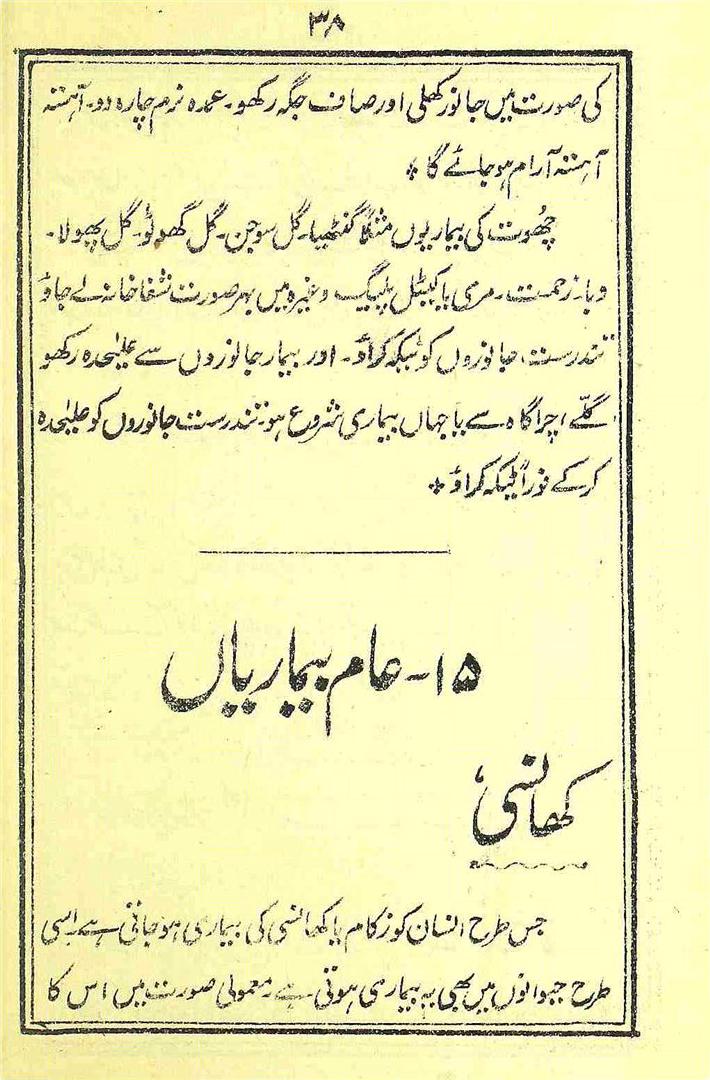 ۳۸
کی صورت میں جانور کھلی اور صاف جگہ رکھو۔ عمدہ نرم چارہ دو۔ آہستہ
آہستہ آرام ہو جائے گا ٭
چھُوت کی بیماریوں مثلاً گنٹھیا۔ گل سوجن۔ گل گھوٹو۔ گل پھولا۔
وبا۔ زحمت۔ مری یا کیٹل پلیگ وغیرہ میں بہر صورت شفاخانہ لے جاؤ
تندرست جانوروں کو ٹیکہ کراؤ۔ اور بیمار جانوروں سے علیٰحدہ رکھو
گلّے، چراگاہ سے یا جہاں بیماری شروع ہو۔ تندرست جانوروں کو علیٰحدہ
کر کے فوراً ٹیکہ کراؤ ٭
۱۵۔ عام بیماریاں
کھانسی
جس طرح انسان کو زکام یا کھانسی کی بیماری ہو جاتی ہے اِسی
طرح حیوانوں میں بھی یہ بیماری ہوتی ہے۔ معمولی صورت میں اس کا